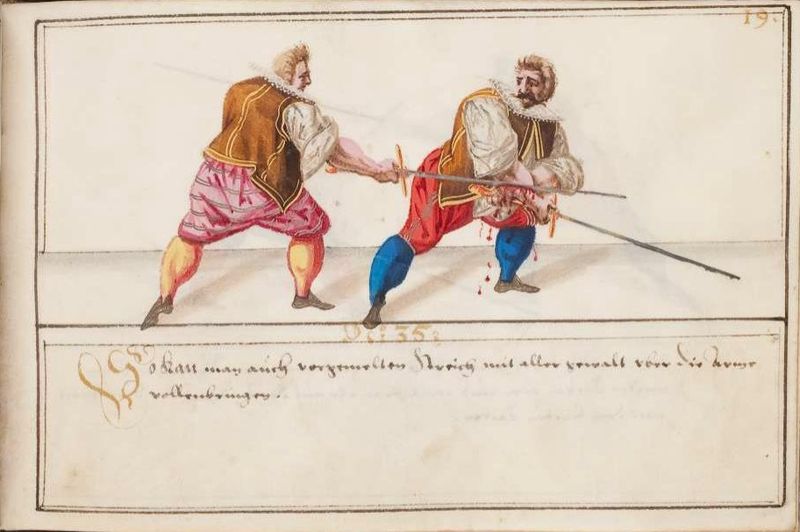 19.
N: 35:
So kan man auch vorgemelten Streich mit aller gewalt vber die Arme
vollenbringen.